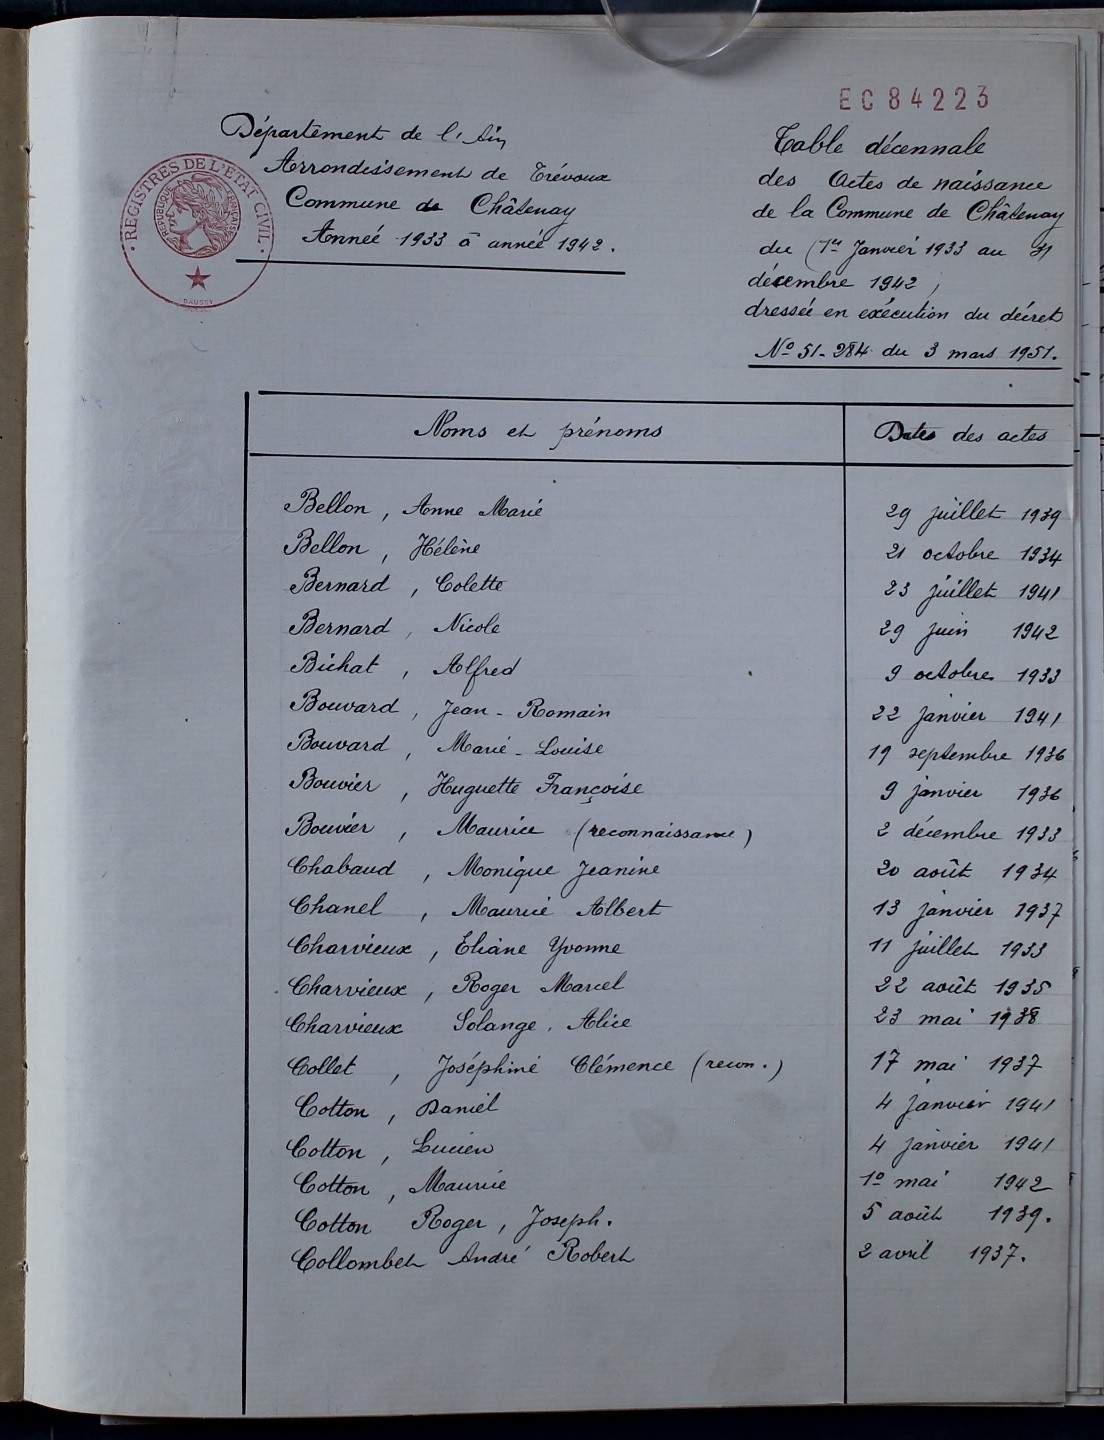 EC84223
Département de l'Ain
Arrondissement de Trévoux
Commune de Châtenay
Année 1933 à année 1942.
REGISTRES DE L'ETAT CIVIL
REPUBLIQUE FRANÇAISE
Table décennale
des Actes de naissance
de la Commune de Châtenay
du 1er Janvier 1933 au 31
décembre 1942,
dressée en exécution du décret
No 51-284 du 3 mars 1951.
Noms et prénoms Dates des actes
Bellon, Anne Marie 29 juillet 1939
Bellon, Hélène 21 octobre 1934
Bernard, Colette 23 juillet 1941
Bernard, Nicole 29 juin 1942
Bichat, Alfred 9 octobre 1933
Bouvard, Jean-Romain 22 janvier 1941
Bouvard, Marie-Louise 19 septembre 1936
Bouvier, Huguette Françoise 9 janvier 1936
Bouvier, Maurice (reconnaissance) 2 décembre 1933
Chabaud, Monique Jeanine 20 août 1934
Chanel, Maurice Albert 13 janvier 1937
Charvieux, Eliane Yvonne 11 juillet 1933
Charvieux, Roger Marcel 22 août 1935
Charvieux Solange, Alice 23 mai 1938
Collet, Joséphine Clémence (recon.) 17 mai 1937
Cotton, Daniel 4 janvier 1941
Cotton, Lucien 4 janvier 1941
Cotton, Maurice 1º mai 1942
Cotton Roger, Joseph. 5 août 1939.
Collombet André Robert 2 avril 1937.